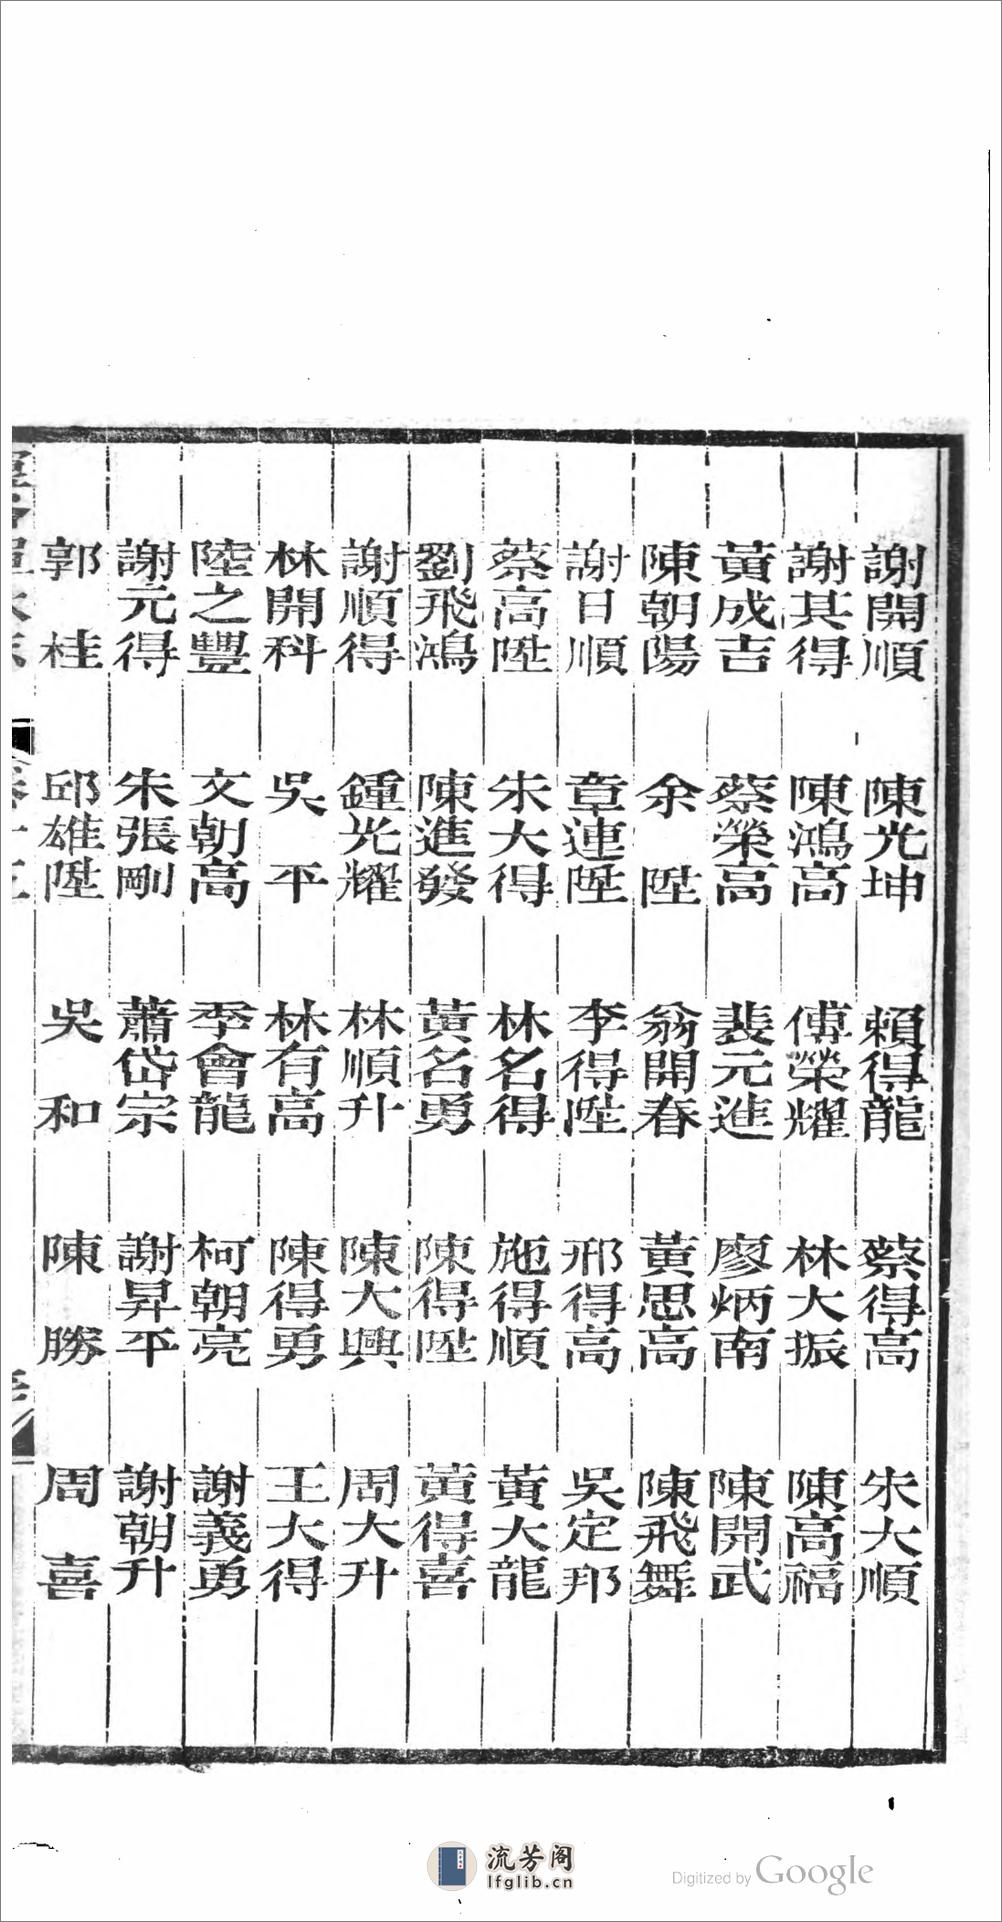 謝開順　陳光坤　賴得龍　蔡得高　朱大順
謝其得　陳鴻高　傅榮耀　林大振　陳高福
黃成吉　蔡榮高　裴元進　廖炳南　陳開武
陳朝陽　余　陞　翁開春　黃思高　陳飛舞
謝日順　章連陞　李得陞　邢得高　吳定邦
蔡高陞　朱大得　林名得　施得順　黃大龍
劉飛鴻　陳進發　黃名勇　陳得陞　黃得喜
謝順得　鍾光耀　林順升　陳大興　周大升
林開科　吳　平　林有高　陳得勇　王大得
陸之豐　文朝高　季會龍　柯朝亮　謝義勇
謝元得　朱張剛　蕭岱宗　謝昇平　謝朝升
郭　桂　邱雄陞　吳　和　陳　勝　周　喜
流芳阁
lfglib.cn
Digitized by Google